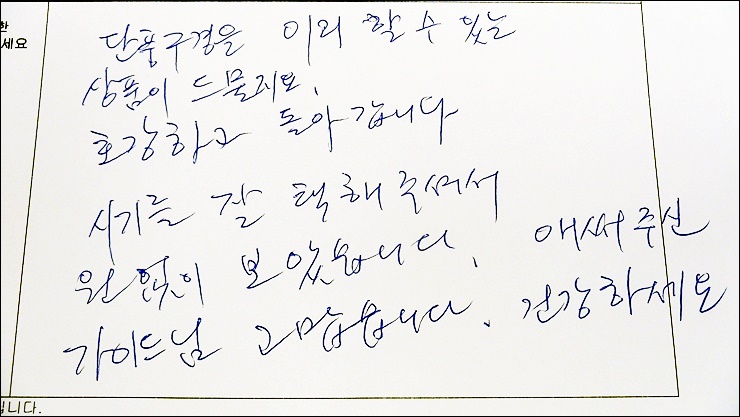 한
세요
단풍구경을 이리 할 수 있는
상품이 드물지요.
호강하고 돌아갑니다
시기를 잘 택해주셔서
원없이 보았습니다. 애써주신
가이드님 고맙습니다. 건강하세요
입니다.